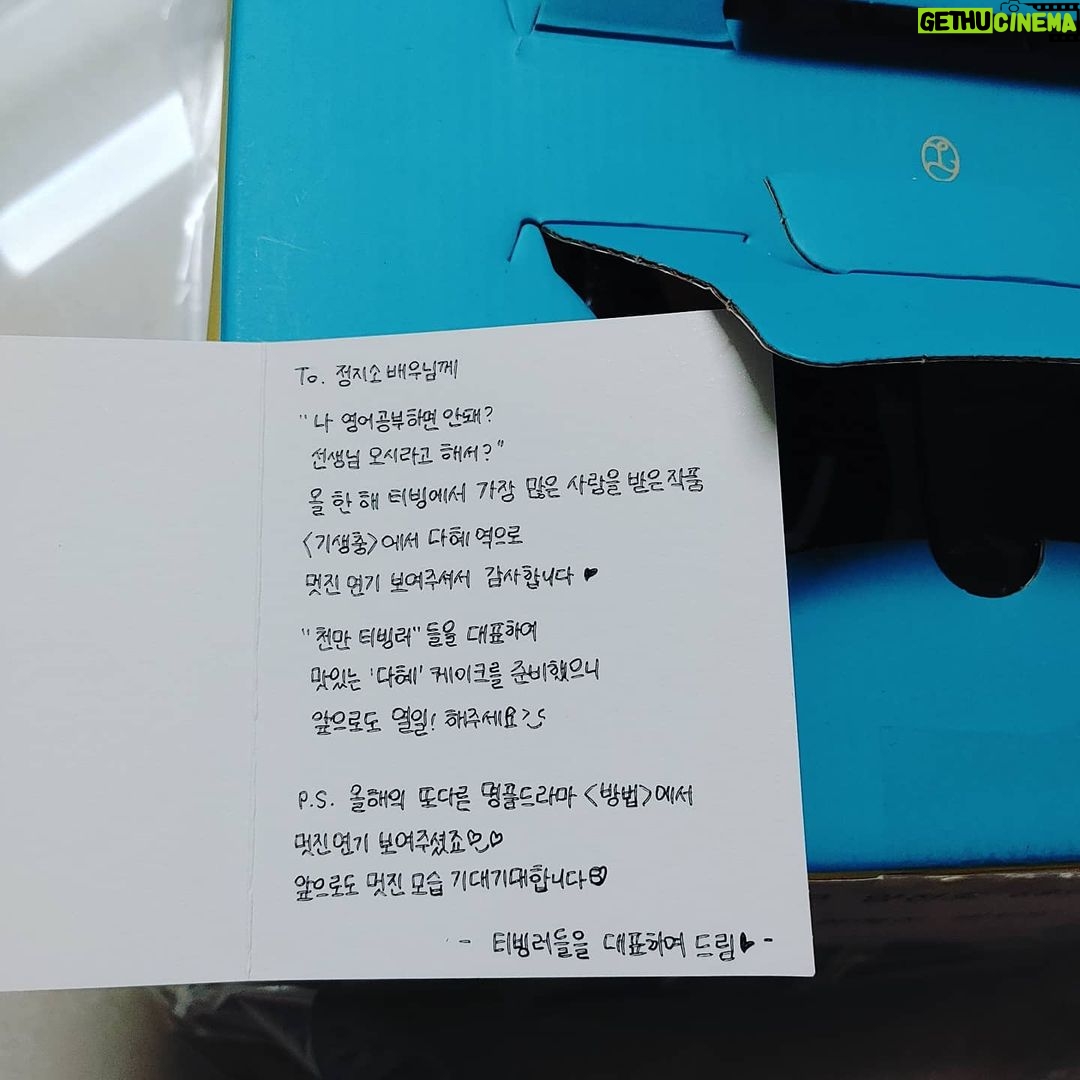 GETHUCINEMA
To. 정지소 배우님께
"나 영어공부하면 안돼?
선생님 오시라고 해서?"
올 한 해 티빙에서 가장 많은 사랑을 받은 작품
<기생충>에서 다혜 역으로
멋진 연기 보여주셔서 감사합니다 ♥
"천만 티빙러"들을 대표하여
맛있는 '다혜' 케이크를 준비했으니
앞으로도 열일! 해주세요
P.S. 올해의 또다른 명품드라마 <방법>에서
멋진연기 보여주셨죠♡♡
앞으로도 멋진 모습 기대기대합니다
- 티빙러들을 대표하여 드림♥ -